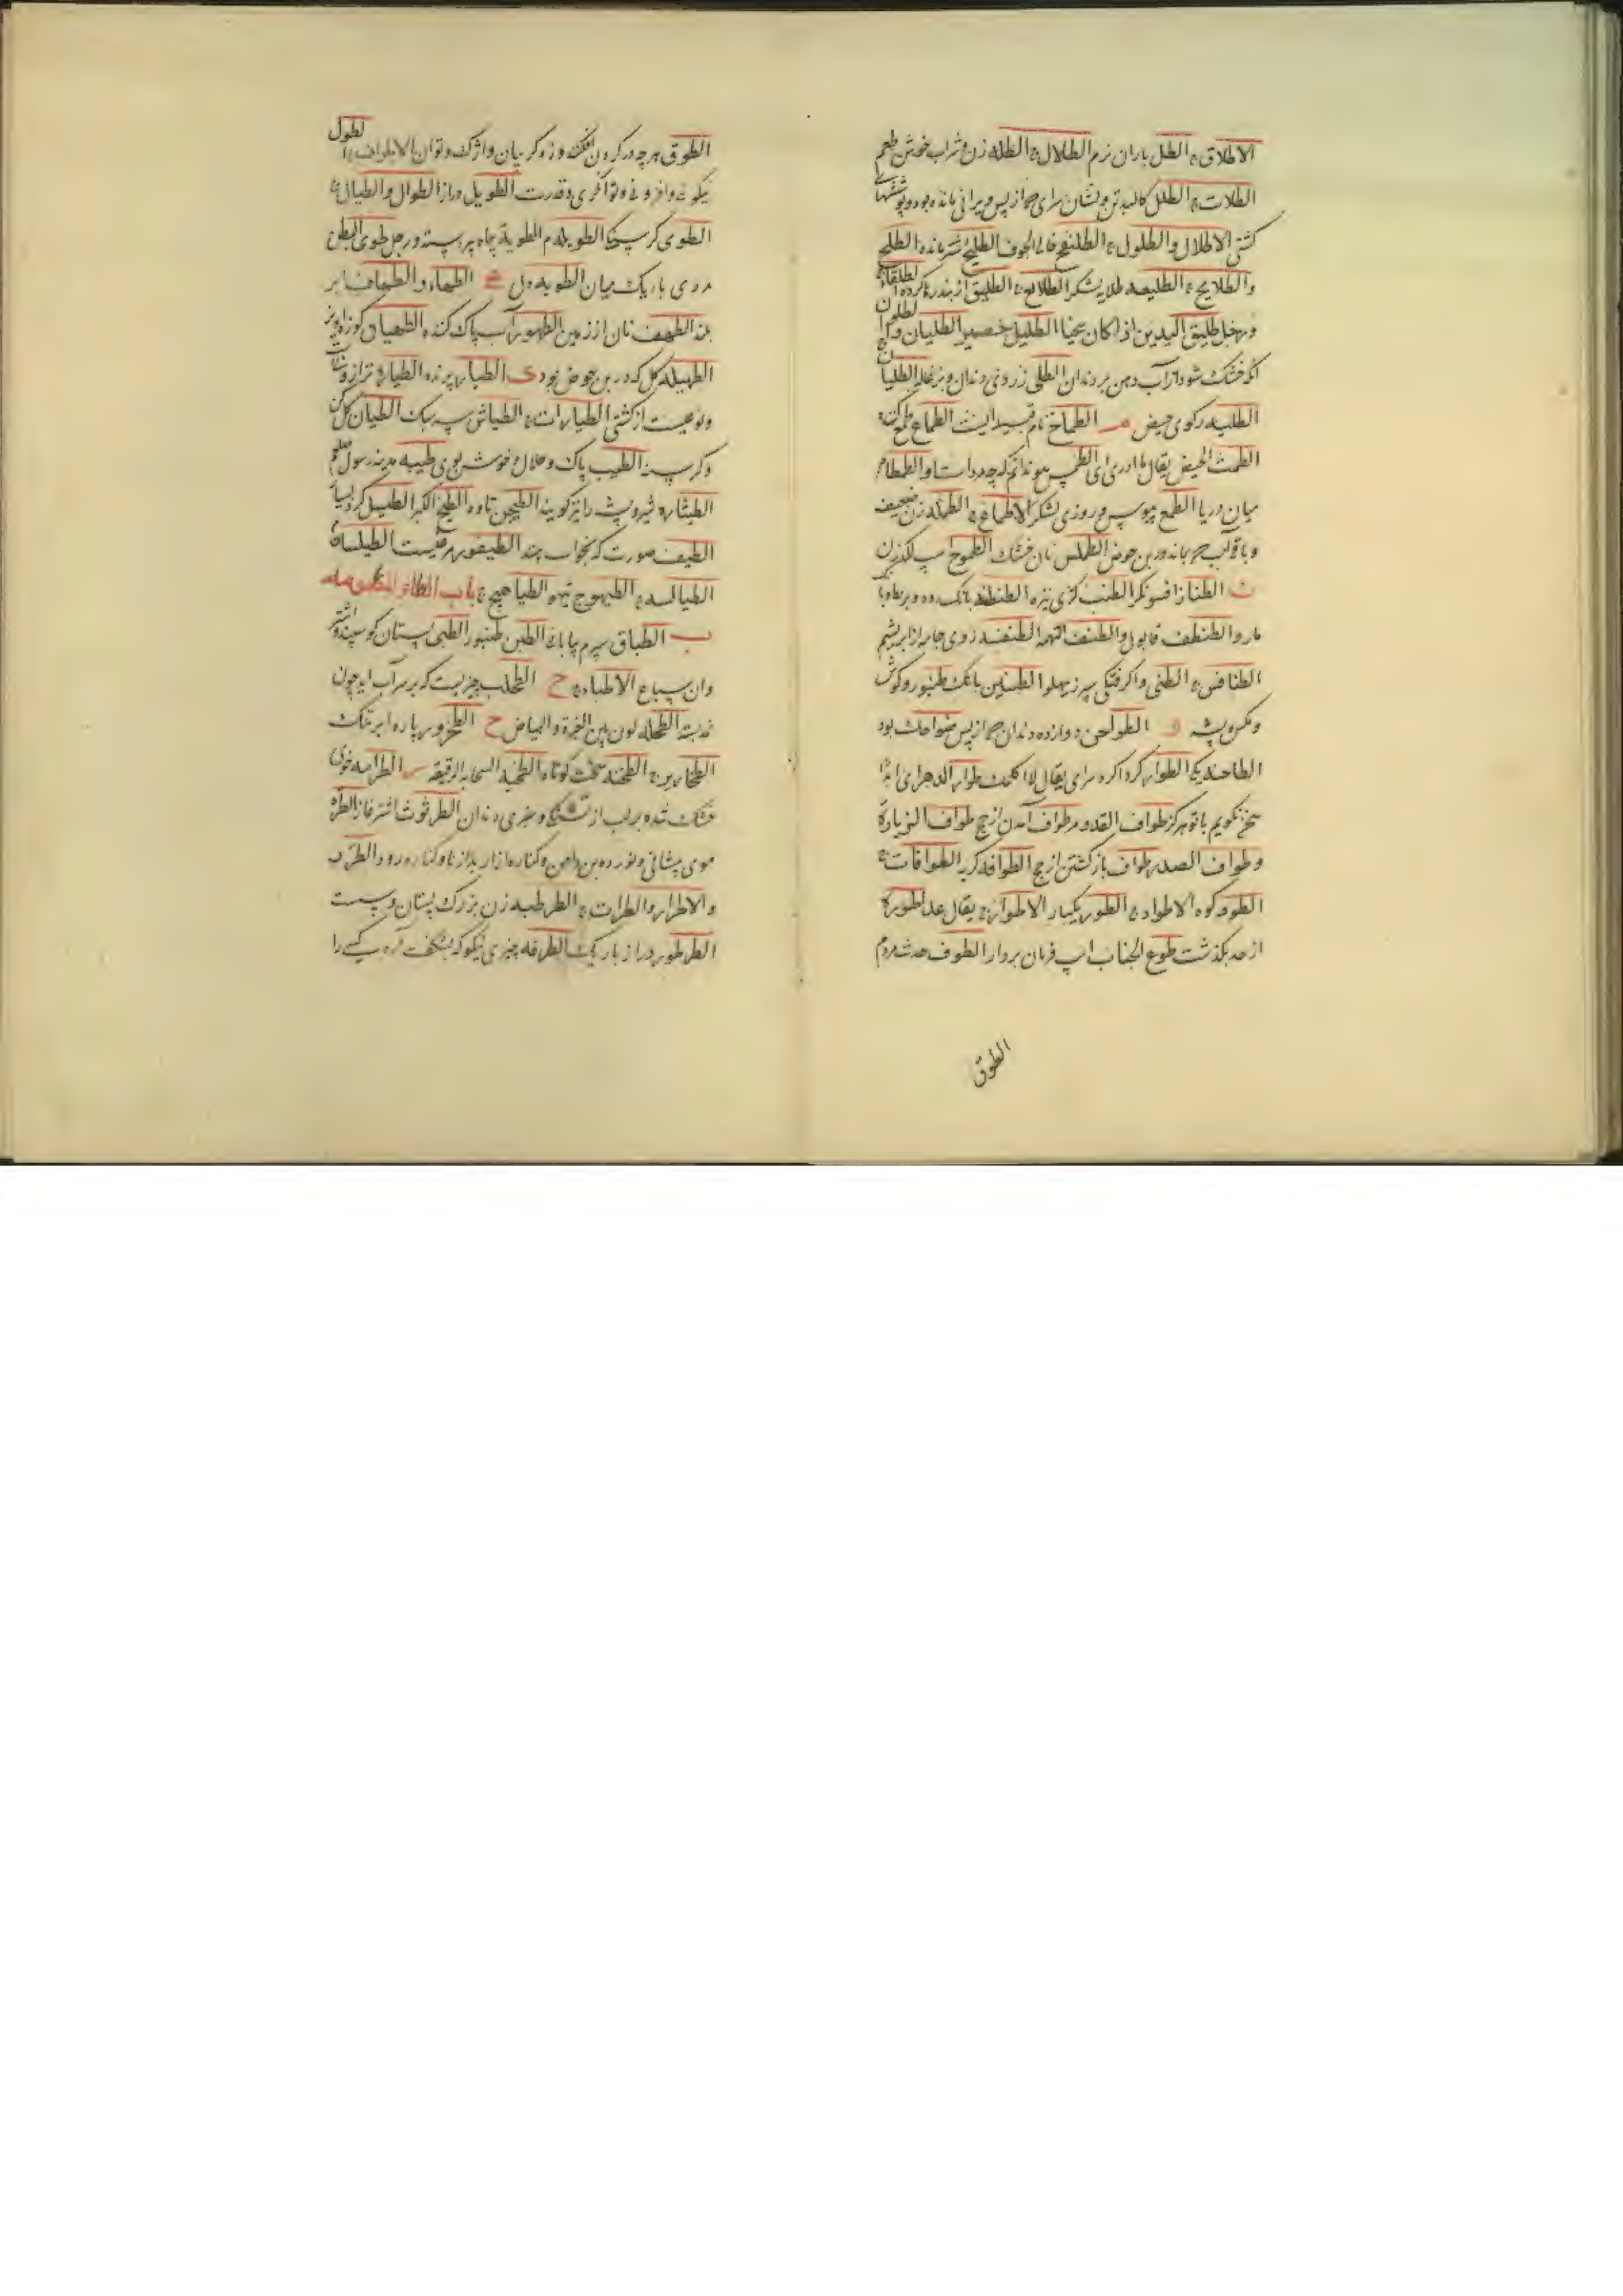 الاطلاق ج الطل باران نرم الطلال ج الطله زن و شراب خوش طعم
الطلات ج الطلل کالبد تن و نشان سرای ج از پس ویرانی مانده بود و پوششهای
کشتی الاطلال والطلول ج الطلنفح خالی الجوف الطلیح شتر مانده الطلح
والطلایح ج الطلیعه طلایه لشکر الطلایع ج الطلیق از بند رها کرده الطلقا ج
ورجل طلیق الیدین اذا کان سخیا الطلیل حصیر الطلیان و الطلوان
آنکه خشک شود از آب دهن بر دندان الطلی زردی دندان و بزغاله الطلیان
الطلیه رکوی حیض م الطماح نام قبیله ایست الطماع طمع کننده
الطمث الحیض یقال ما ادری ای الطمس هو ندانم که چه مرد است او الطمطام
میان دریا الطمع بیوس و روزی لشکر الاطماع ج الطمله زن ضعیف
و باقی آب ج بماند در بن حوض الطملس نان خشک الطموح اسب لگدزن
ن الطناز افسونگر الطنب کژی نیزه الطنطنه بانک رود و بربط و با
مارو الطنطف الطنف التهمه الطنفسه زوی جامه از ابریشم
الطنافس ج الطنی واگرفتگی سپرز بپهلو الطنین بانک طنبور و گوش
و مگس و پشه و الطواحن دوازده دندان ج از پس ضواحک بود
الطاحنه یکی الطوار گرداگرد سرای یقال لا اکلمک طوار الدهر ای ابدا
سخن نگویم با تو هرگز طواف القدوم طواف آمدن از حج طواف الزیارة
وطواف الصدر طواف بازگشتن از حج الطوافه گربه الطوافات ج
الطود کوه الاطواد ج الطور یکبار الاطوار ج یقال عدا طوره
از حد بگذشت طوع الجناب اسب فرمان بردار الطوف حدث مردم
الطوق
الطوق هرچه در گردن افکنند و زه گریبان و توان الاطواق ج الطول
نیکوئی و افزونی و توانگری و قدرت الطویل دراز الطوال والطیال ج
الطوی گرسنگی الطویله الطویة چاه پیراسته ورجل طوی البطن
مردی باریک میان الطویه دل ه الطهاء والطهاف ابر
بلند الطهف نان ارزن الطهور آب پاک کننده الطهیان
الطهیله گل که در بن حوض بود ی الطیار پرنده الطیاره ترازو
و نوعیست از کشتی الطیارات ج الطیاش سبک الطیان گل کن
و گرسنه الطیب پاک و حلال و خوش بوی طیبه مدینه رسول صلعم
الطیثار شیر و پشه را نیز گویند الطیجن تاوه الطیخ الکبر الطیسل گرد بسیار
الطیف صورت که بخواب بینند الطیفور مرغیست الطیلسان
الطیالسه ج الطیهوج تیهو الطیاهیج ج باب الطاء المضمومه
ب الطباق سپرم بیابانی الطبن طنبور الطبی پستان گوسپند و اشتر
وان سباع الاطباء ج ح الطحلب چیزیست که بر سر آب آید چون
نمد بسته الطحله لون بین الغبرة والبیاض خ الطخرور پاره ابر تنک
الطخاریر ج الطخنه سخت کوتاه الطخیه السحابه الرقیقه ر الطرامه خوی
خشک شده بر لب از تشنگی و سبزی دندان الطرثوث اشترغاز الطره
موی پیشانی و نورده بن دامن و کناره ازار یا از تا و کناره رود و الطرر
والاطرار والطرات ج الطرطبه زن بزرگ پستان و سست
الطرطور دراز باریک الطرفه چیزی نیکو که بشگفت آرد کسی را